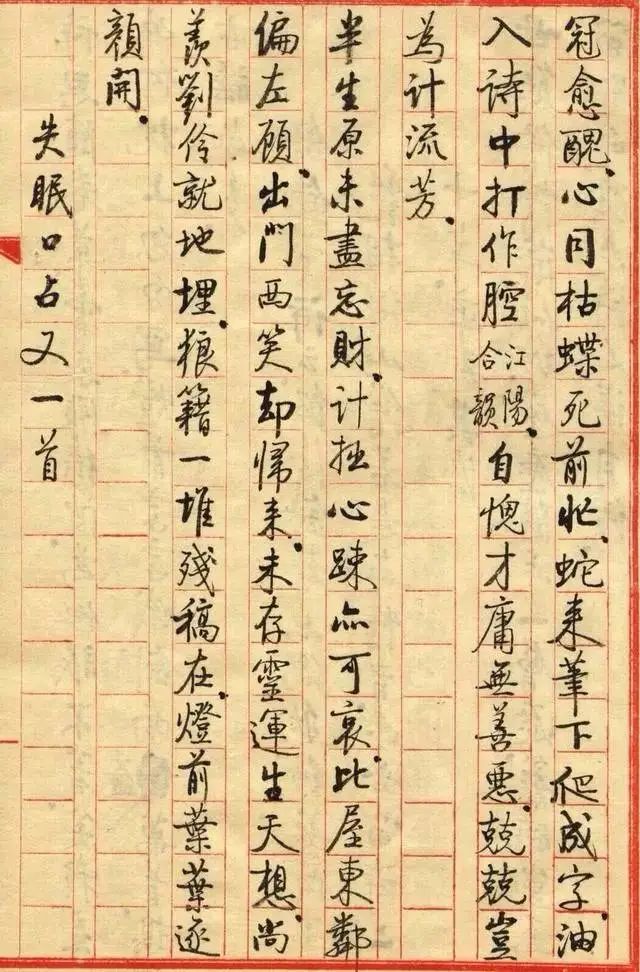 冠愈醜。心同枯蝶死前忙。蛇来筆下爬成字。油
入詩中打作腔江陽合韻。自愧才庸無善惡。兢兢豈
為計流芳。
半生原未盡忘財。計拙心踈亦可哀。比屋東鄰
偏左顧。出門西笑却歸来。未存靈運生天想。尚
羨劉伶就地埋。狼籍一堆殘稿在。燈前葉葉逐
顏開。
失眠口占又一首